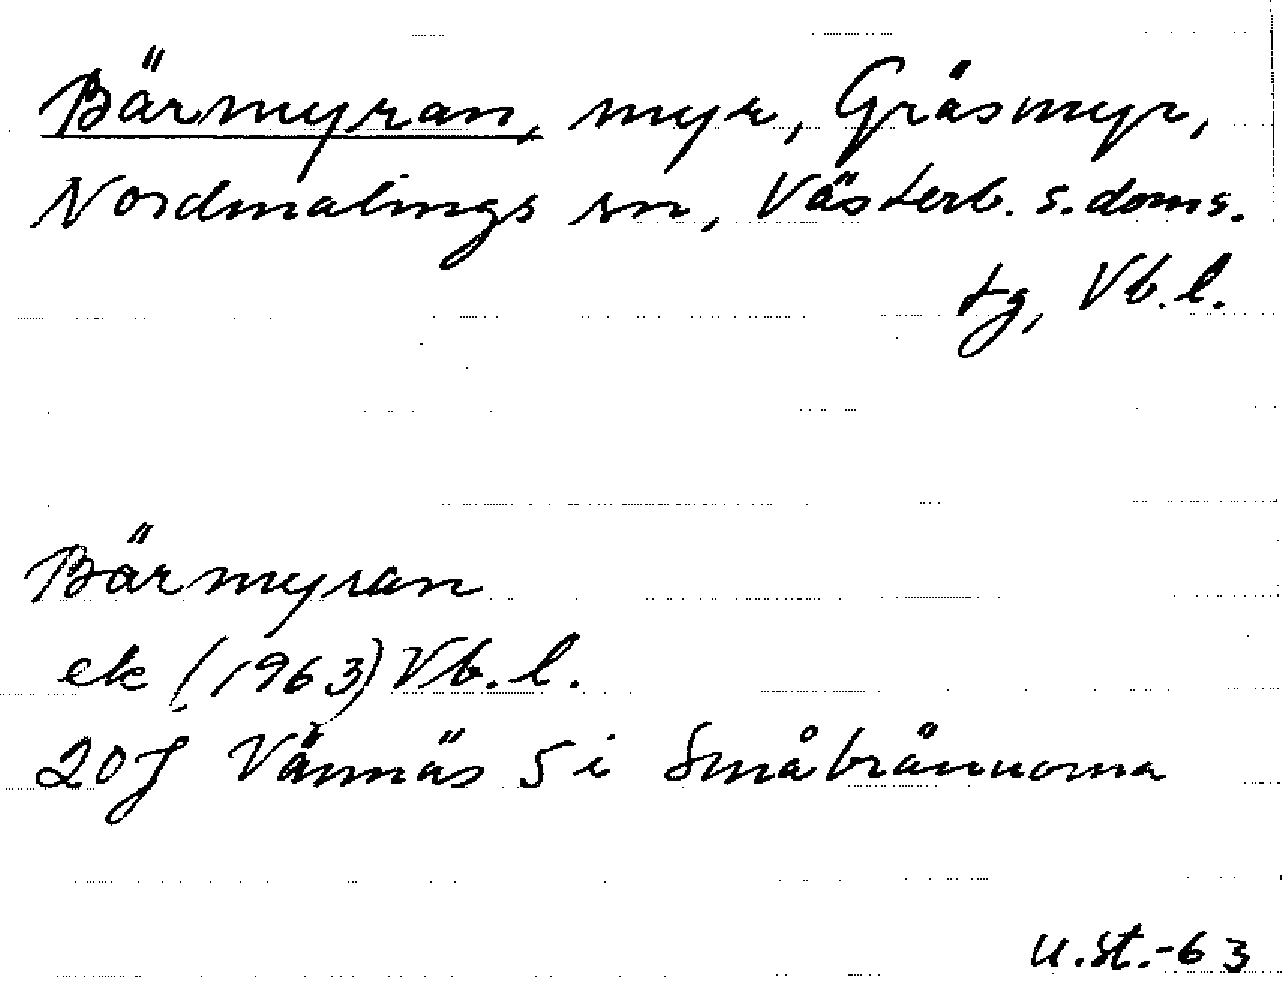 Bärmyran, myr, Gräsmyr,
Nordmalings sn, Västerb. s. doms.
tg, Vb. l.
Bärmyran
ek (1963) Vb. l.
20J Vännäs 5 i Småbrännorna
U.St.-63